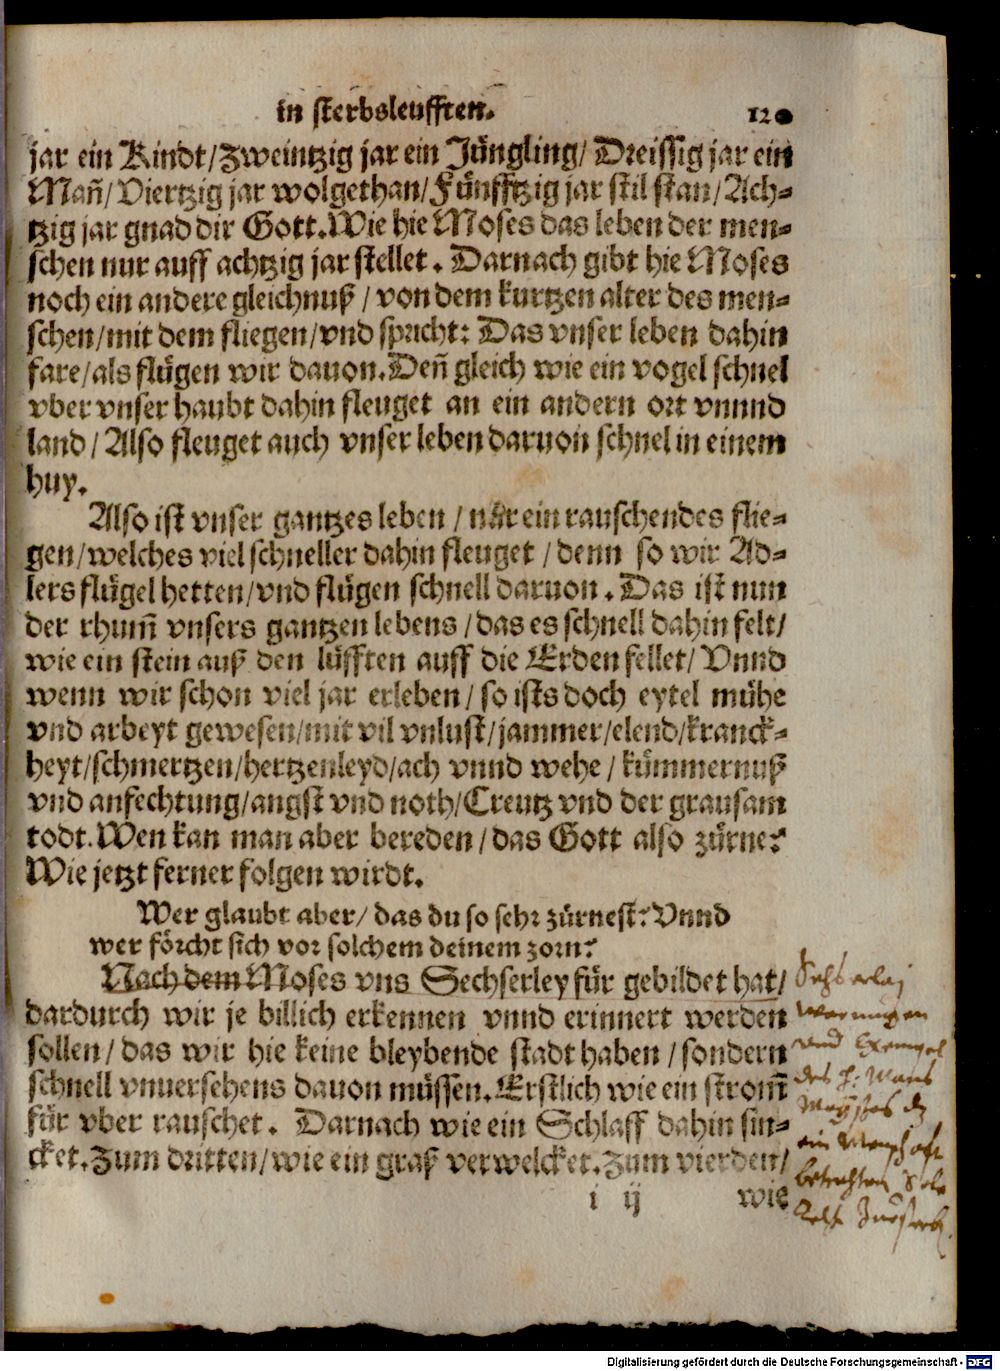 in sterbsleufften. 12
jar ein Kindt/Zweintzig jar ein Jüngling/ Dreissig jar ein
Mañ/Viertzig jar wolgethan/Fünfftzig jar stil stan/Ach-
tzig jar gnad dir Gott.Wie hie Moses das leben der men-
schen nur auff achtzig jar stellet. Darnach gibt hie Moses
noch ein andere gleichnuß/von dem kurtzen alter des men-
schen/mit dem fliegen/vnd spricht: Das vnser leben dahin
fare/als flügen wir dauon.Deñ gleich wie ein vogel schnel
vber vnser haubt dahin fleuget an ein andern ort vnnd
land/Also fleuget auch vnser leben daruon schnel in einem
huy.
Also ist vnser gantzes leben/nur ein rauschendes flie-
gen/welches viel schneller dahin fleuget/denn so wir Ad-
lers flügel hetten/vnd flügen schnell daruon. Das ist nun
der rhum̃ vnsers gantzen lebens/das es schnell dahin felt/
wie ein stein auß den lüfften auff die Erden fellet/Vnnd
wenn wir schon viel jar erleben/so ists doch eytel mühe
vnd arbeyt gewesen/mit vil vnlust/jammer/elend/kranck-
heyt/schmertzen/hertzenleyd/ach vnnd wehe/kümmernuß
vnd anfechtung/angst vnd noth/Creutz vnd der grausam
todt.Wen kan man aber bereden/das Gott also zürne?
Wie jetzt ferner folgen wirdt.
Wer glaubt aber/das du so sehr zürnest?Vnnd
wer förcht sich vor solchem deinem zorn?
Nach dem Moses vns Sechserley für gebildet hat/
dardurch wir je billich erkennen vnnd erinnert werden
sollen/das wir hie keine bleybende stadt haben/sondern
schnell vnuersehens dauon müssen.Erstlich wie ein strom̃
für vber rauschet. Darnach wie ein Schlaff dahin sin-
cket.Zum dritten/wie ein graß verwelcket.Zum vierden/
i ij wie
Sechserlej
vnd Exempel
betrachten
Digitalisierung gefördert durch die Deutsche Forschungsgemeinschaft - DFG